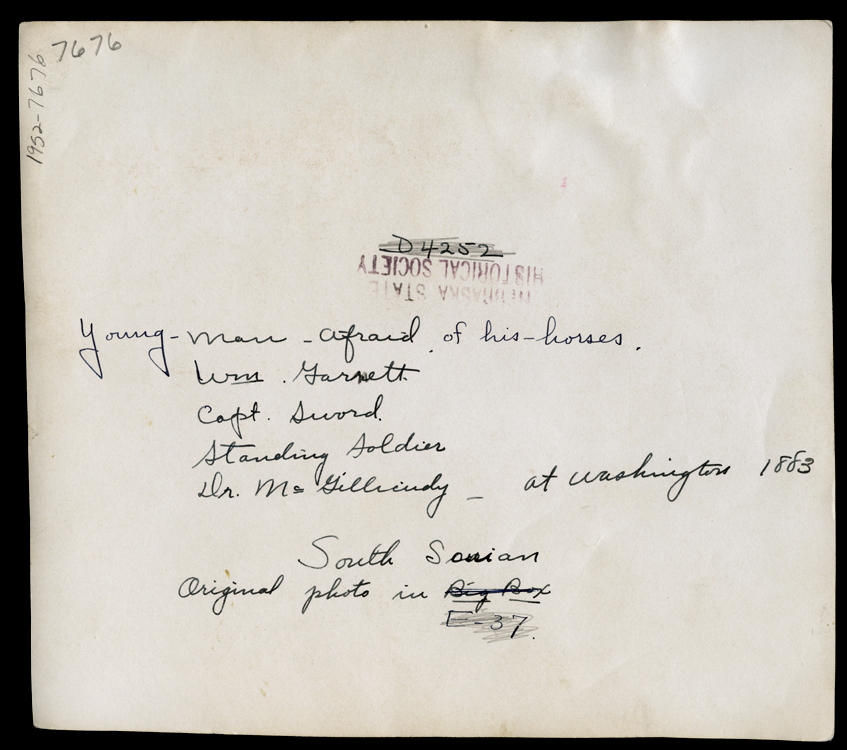 7676
1952-7676
D4252
NEBRASKA STATE
HISTORICAL SOCIETY
Young-man-afraid of his-horses.
Wm. Garnett
Capt. Sword.
Standing Soldier
Dr. McGillicudy - at Washington 1883
South
Original photo in Big Box
E-37.